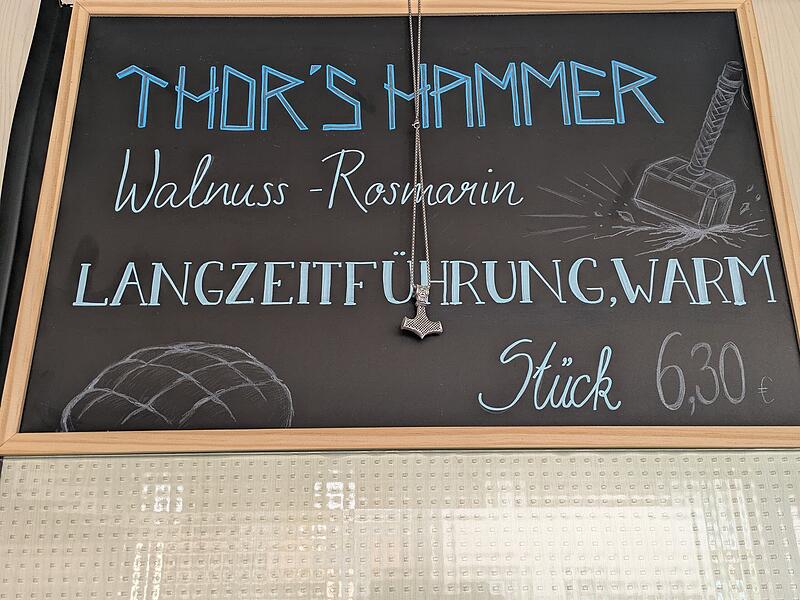 THOR'S HAMMER
Walnuss - Rosmarin
LANGZEITFÜHRUNG, WARM
Stück 6,30 €